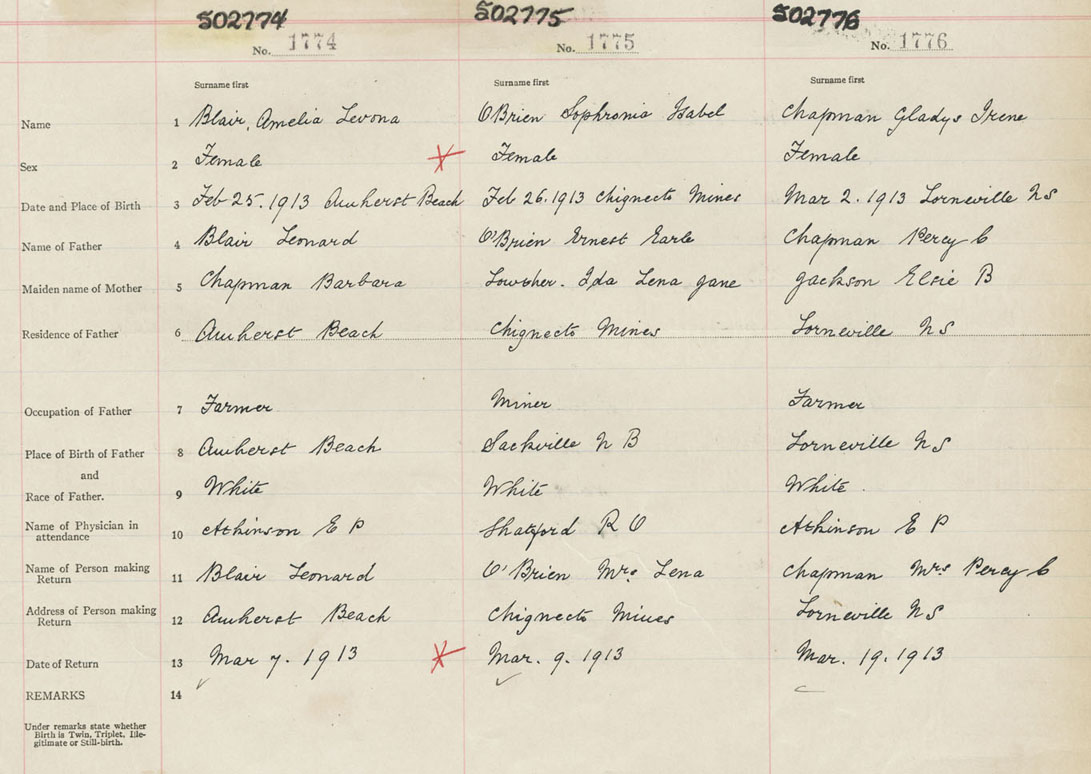 502774 502775 502776
No. 1774 No. 1775 No. 1776
Surname first Surname first Surname first
Name 1 Blair, Amelia Levona O'Brien Sophronia Isabel Chapman Gladys Irene
Sex 2 Female Female Female
Date and Place of Birth 3 Feb 25. 1913 Amherst Beach Feb 26. 1913 Chignecto Mines Mar 2. 1913 Lorneville N S
Name of Father 4 Blair Leonard O'Brien Ernest Earle Chapman Percy C
Maiden name of Mother 5 Chapman Barbara Lowther. Ida Lena Jane Jackson Elsie B
Residence of Father 6 Amherst Beach Chignecto Mines Lorneville N S
Occupation of Father 7 Farmer Miner Farmer
Place of Birth of Father 8 Amherst Beach Sackville N B Lorneville N S
and
Race of Father. 9 White White White
Name of Physician in
attendance 10 Atkinson E P Shatford R O Atkinson E P
Name of Person making
Return 11 Blair Leonard O'Brien Mrs Lena Chapman Mrs Percy C
Address of Person making
Return 12 Amherst Beach Chignecto Mines Lorneville N S
Date of Return 13 Mar 7. 1913 Mar. 9. 1913 Mar. 19. 1913
REMARKS 14
Under remarks state whether
Birth is Twin, Triplet, Ille-
gitimate or Still-birth.